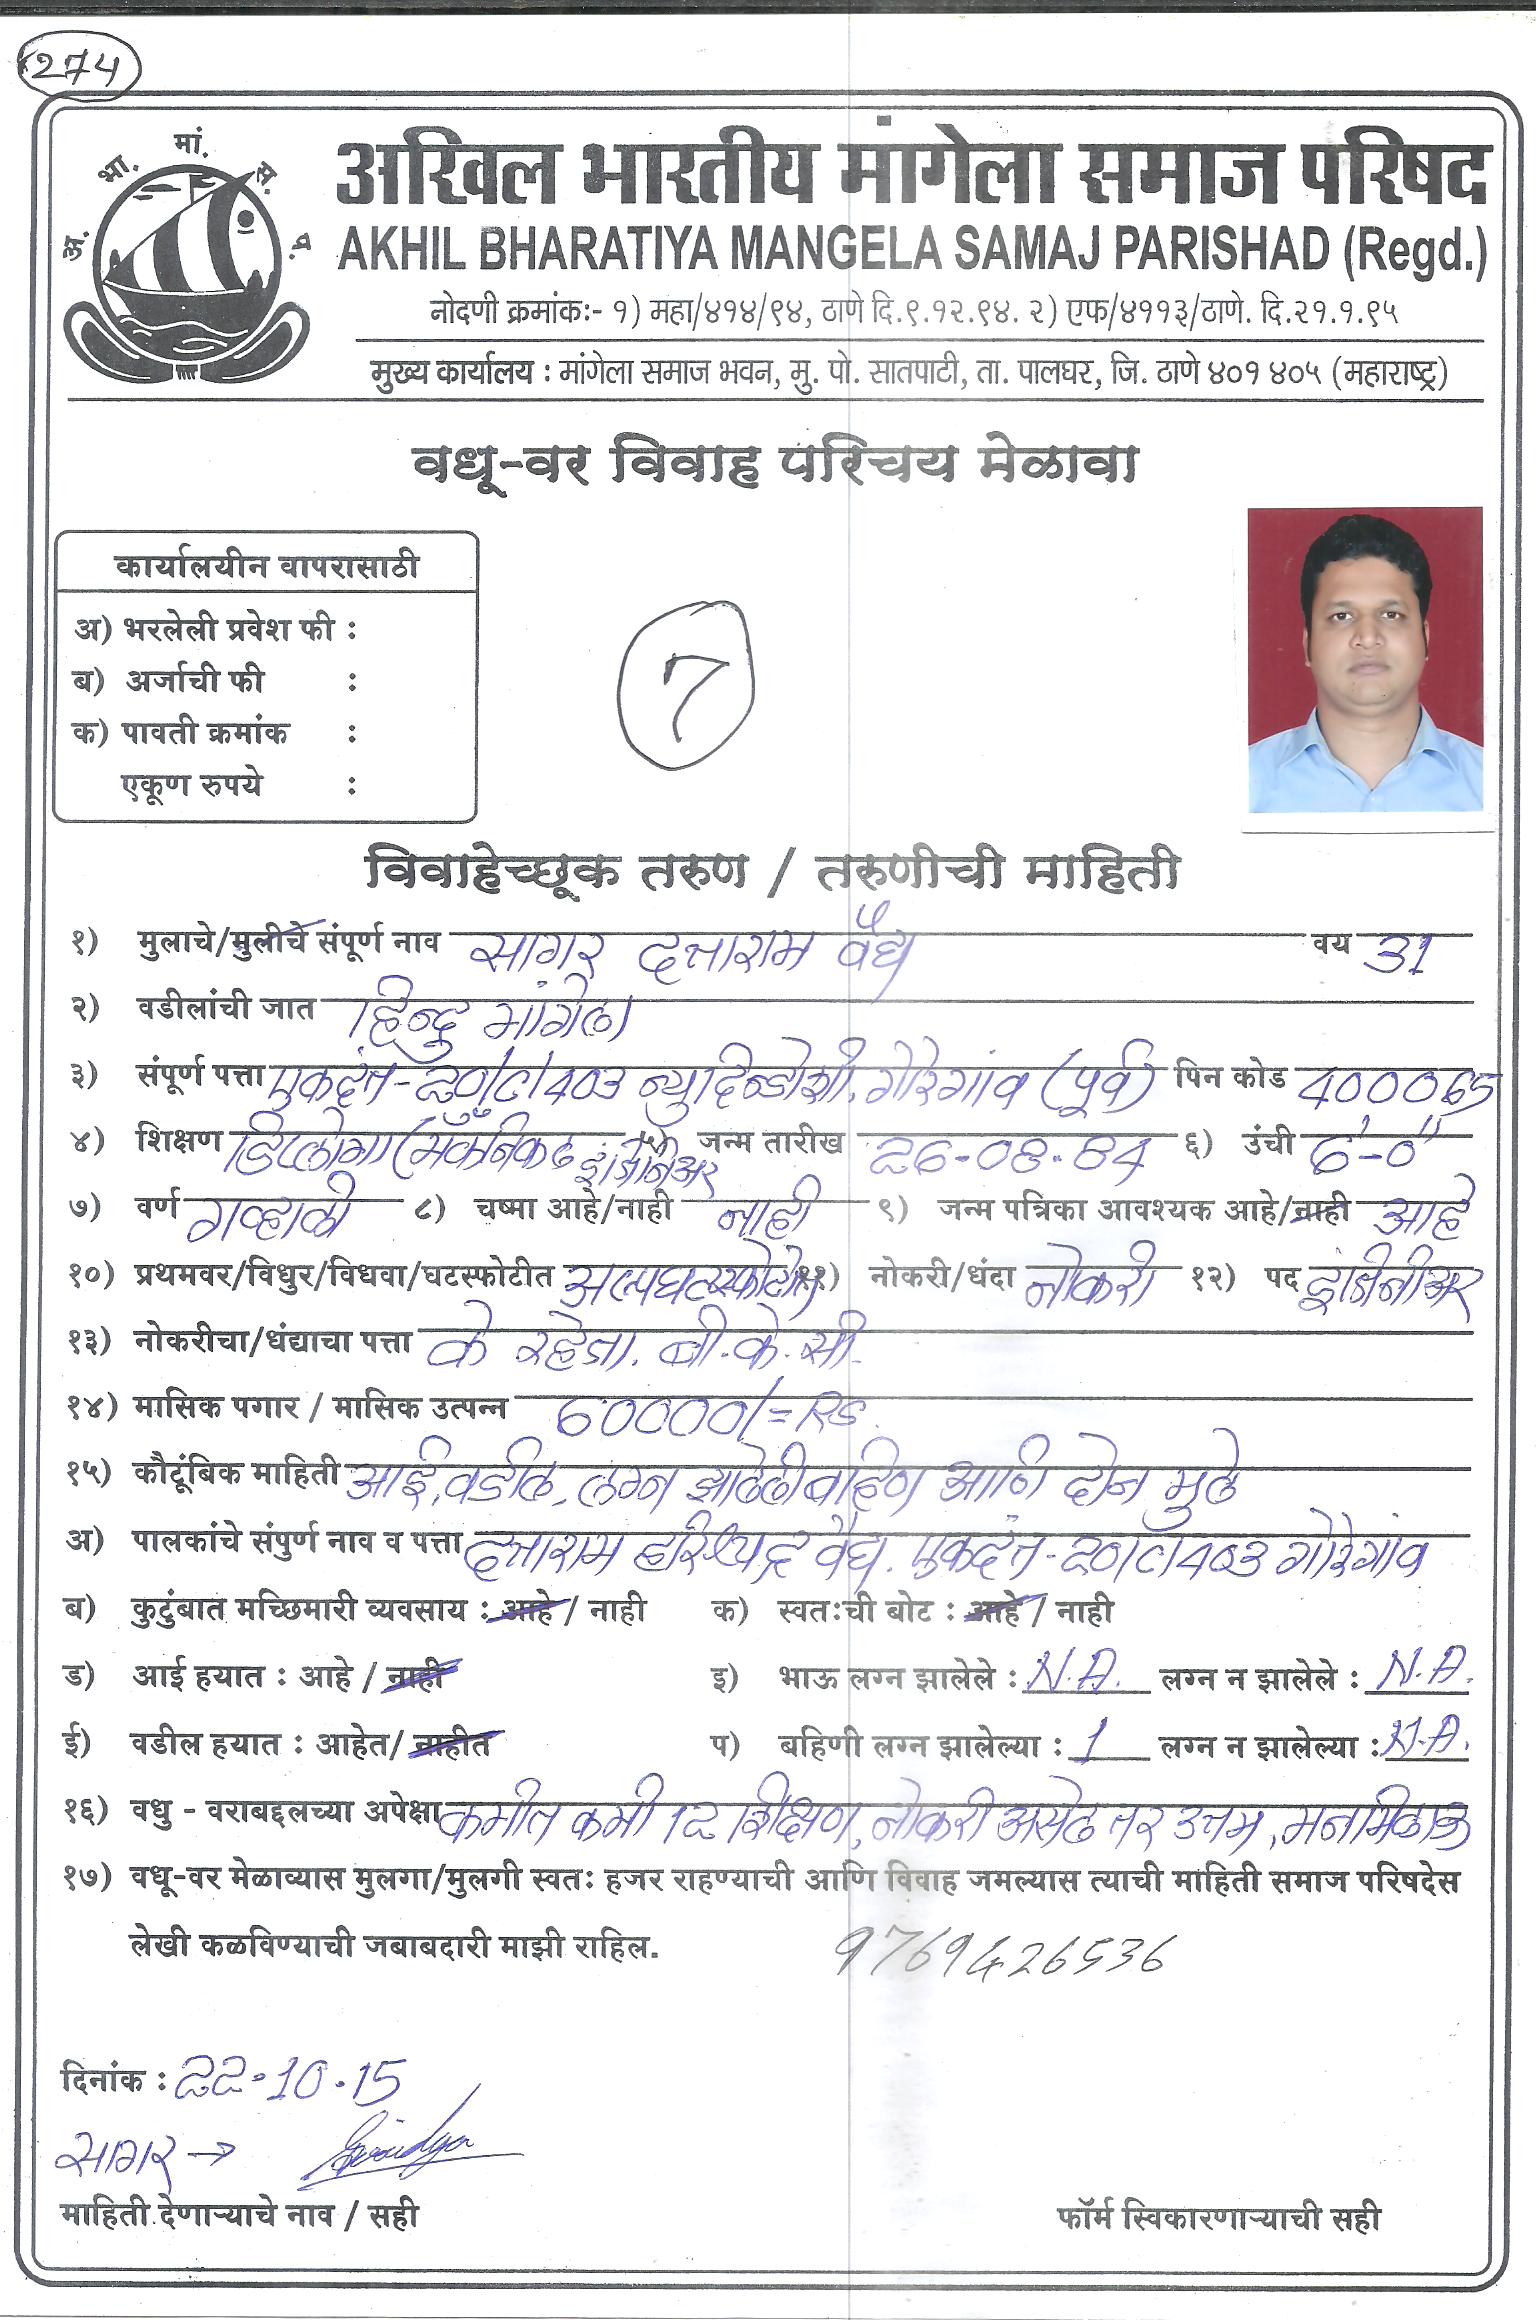 274
अ. भा. मां. स. प.
अखिल भारतीय मांगेला समाज परिषद
AKHIL BHARATIYA MANGELA SAMAJ PARISHAD (Regd.)
नोदणी क्रमांकः- १) महा/४१४/९४, ठाणे दि.९.१२.९४. २) एफ/४११३/ठाणे. दि.२१.१.९५
मुख्य कार्यालय : मांगेला समाज भवन, मु. पो. सातपाटी, ता. पालघर, जि. ठाणे ४०१ ४०५ (महाराष्ट्र)
वधू-वर विवाह परिचय मेळावा
कार्यालयीन वापरासाठी
अ) भरलेली प्रवेश फी :
ब) अर्जाची फी :
क) पावती क्रमांक :
एकूण रुपये :
7
विवाहेच्छूक तरुण / तरुणीची माहिती
१) मुलाचे/मुलीचे संपूर्ण नाव सागर दत्ताराम वैद्य वय 31
२) वडीलांची जात हिन्दु मांगेला
३) संपूर्ण पत्ता एकदंत-20/C/403 न्यु दिन्डोशी, गोरेगांव (पूर्व) पिन कोड 400065
४) शिक्षण डिप्लोमा (मॅकनिकल इंजिनिअर ५) जन्म तारीख 26-08-84 ६) उंची 6'-0"
७) वर्ण गव्हाळी ८) चष्मा आहे/नाही नाही ९) जन्म पत्रिका आवश्यक आहे/नाही आहे
१०) प्रथमवर/विधुर/विधवा/घटस्फोटीत अल्पघटस्फोटीत ११) नोकरी/धंदा नोकरी १२) पद इंजिनीअर
१३) नोकरीचा/धंद्याचा पत्ता के रहेजा. बी.के.सी.
१४) मासिक पगार / मासिक उत्पन्न 60000/= RS.
१५) कौटूंबिक माहिती आई, वडील, लग्न झालेली बहिण आणि दोन मुले
अ) पालकांचे संपुर्ण नाव व पत्ता दत्ताराम हरिश्चंद्र वैद्य. एकदंत-20/C/403 गोरेगांव
ब) कुटुंबात मच्छिमारी व्यवसाय : आहे / नाही क) स्वतःची बोट : आहे / नाही
ड) आई हयात : आहे / नाही इ) भाऊ लग्न झालेले : N.A. लग्न न झालेले : N.A.
ई) वडील हयात : आहेत/ नाहीत प) बहिणी लग्न झालेल्या : 1 लग्न न झालेल्या : N.A.
१६) वधु - वराबद्दलच्या अपेक्षा कमीत कमी 12 शिक्षण, नोकरी असेल तर उत्तम, मनमिळाऊ
१७) वधू-वर मेळाव्यास मुलगा/मुलगी स्वतः हजर राहण्याची आणि विवाह जमल्यास त्याची माहिती समाज परिषदेस
लेखी कळविण्याची जबाबदारी माझी राहिल. 9769426536
दिनांक : 22-10-15
सागर →
माहिती देणाऱ्याचे नाव / सही फॉर्म स्विकारणाऱ्याची सही